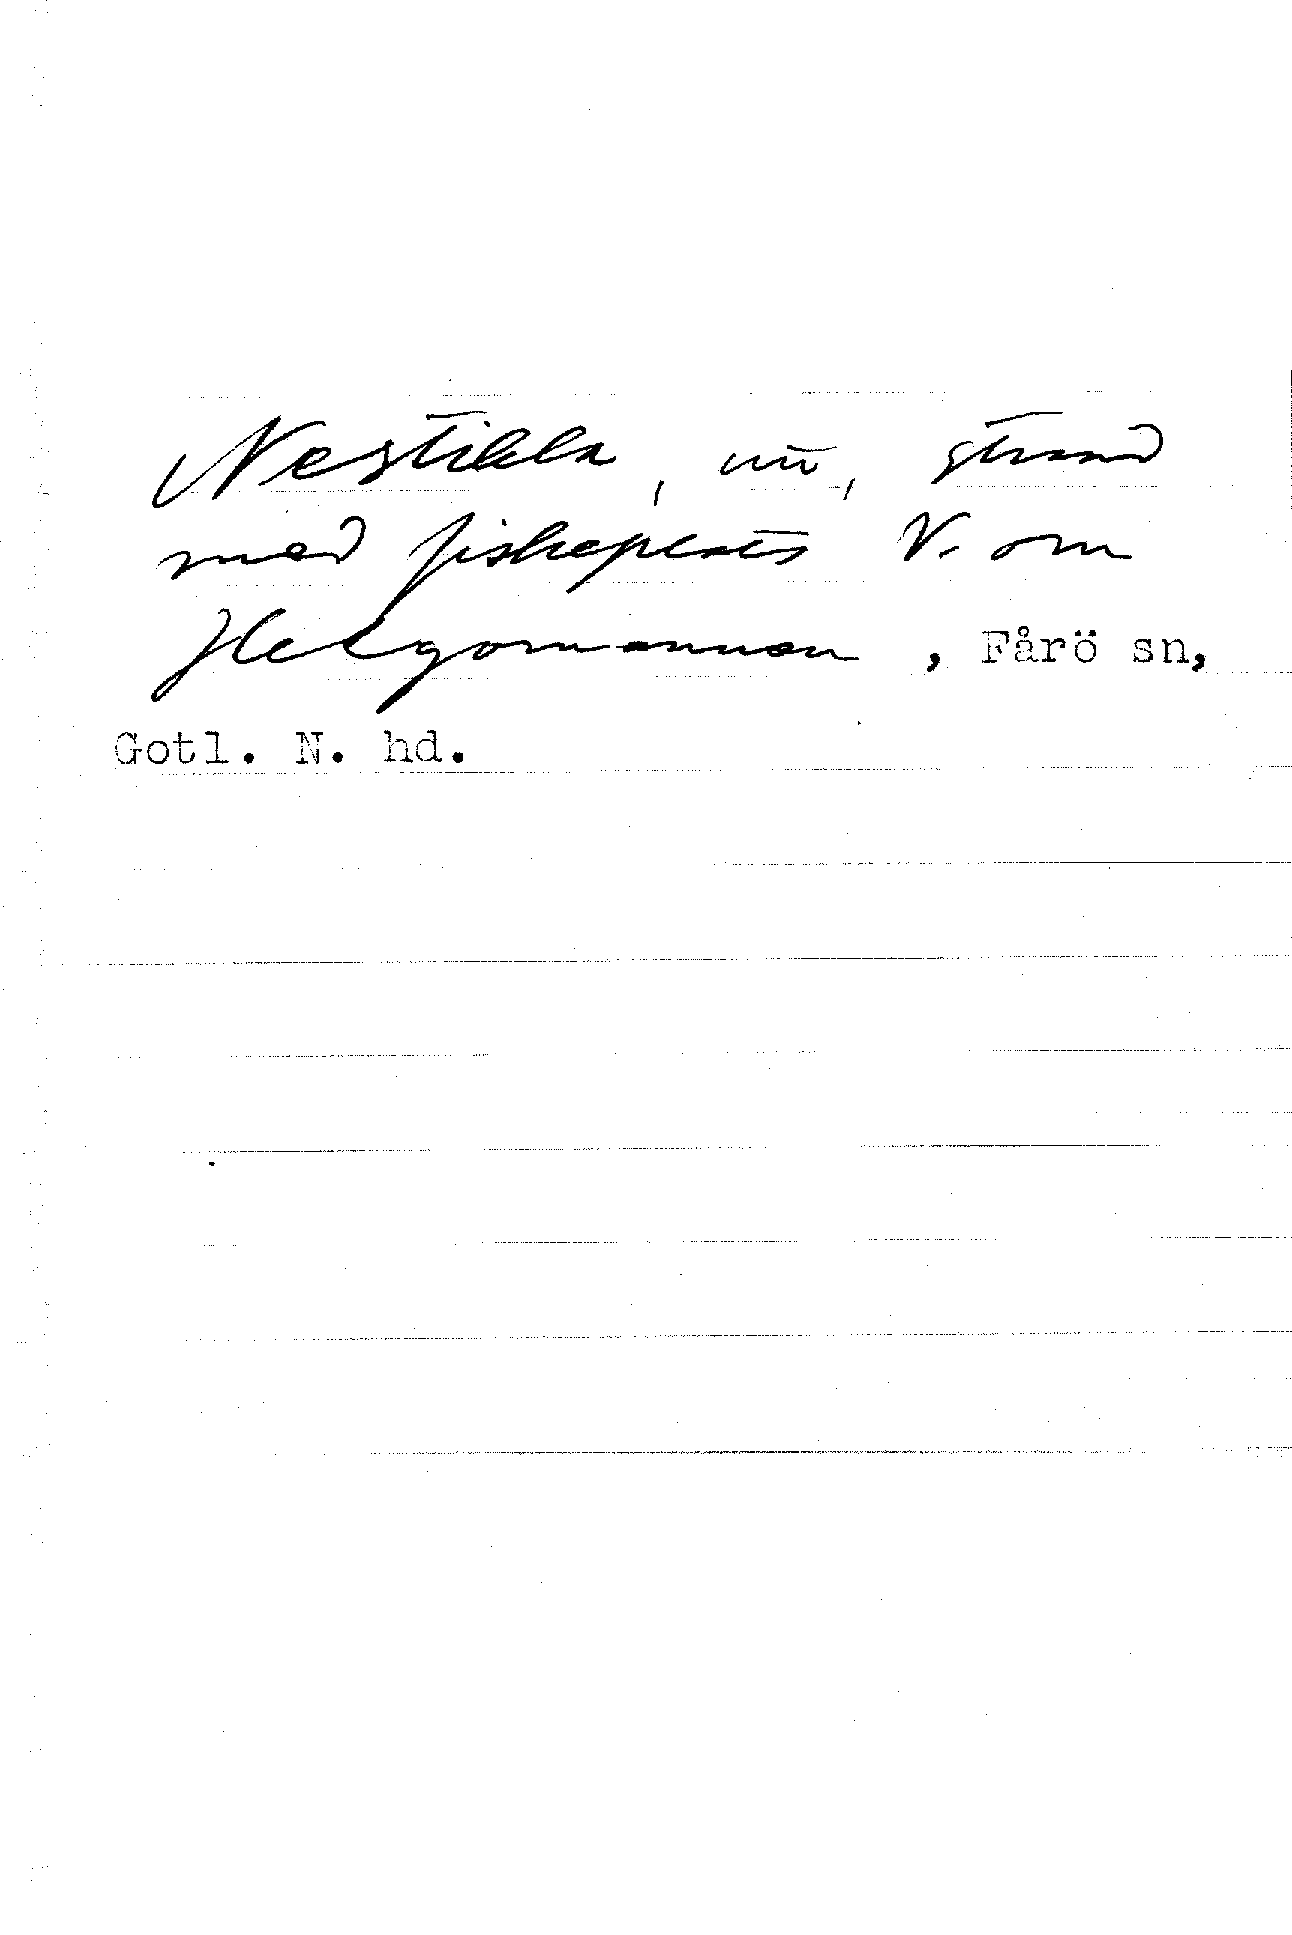 Nestikla, nu, strand
med fiskeplats V. om
Helgomannen, Fårö sn,
Gotl. N. hd.